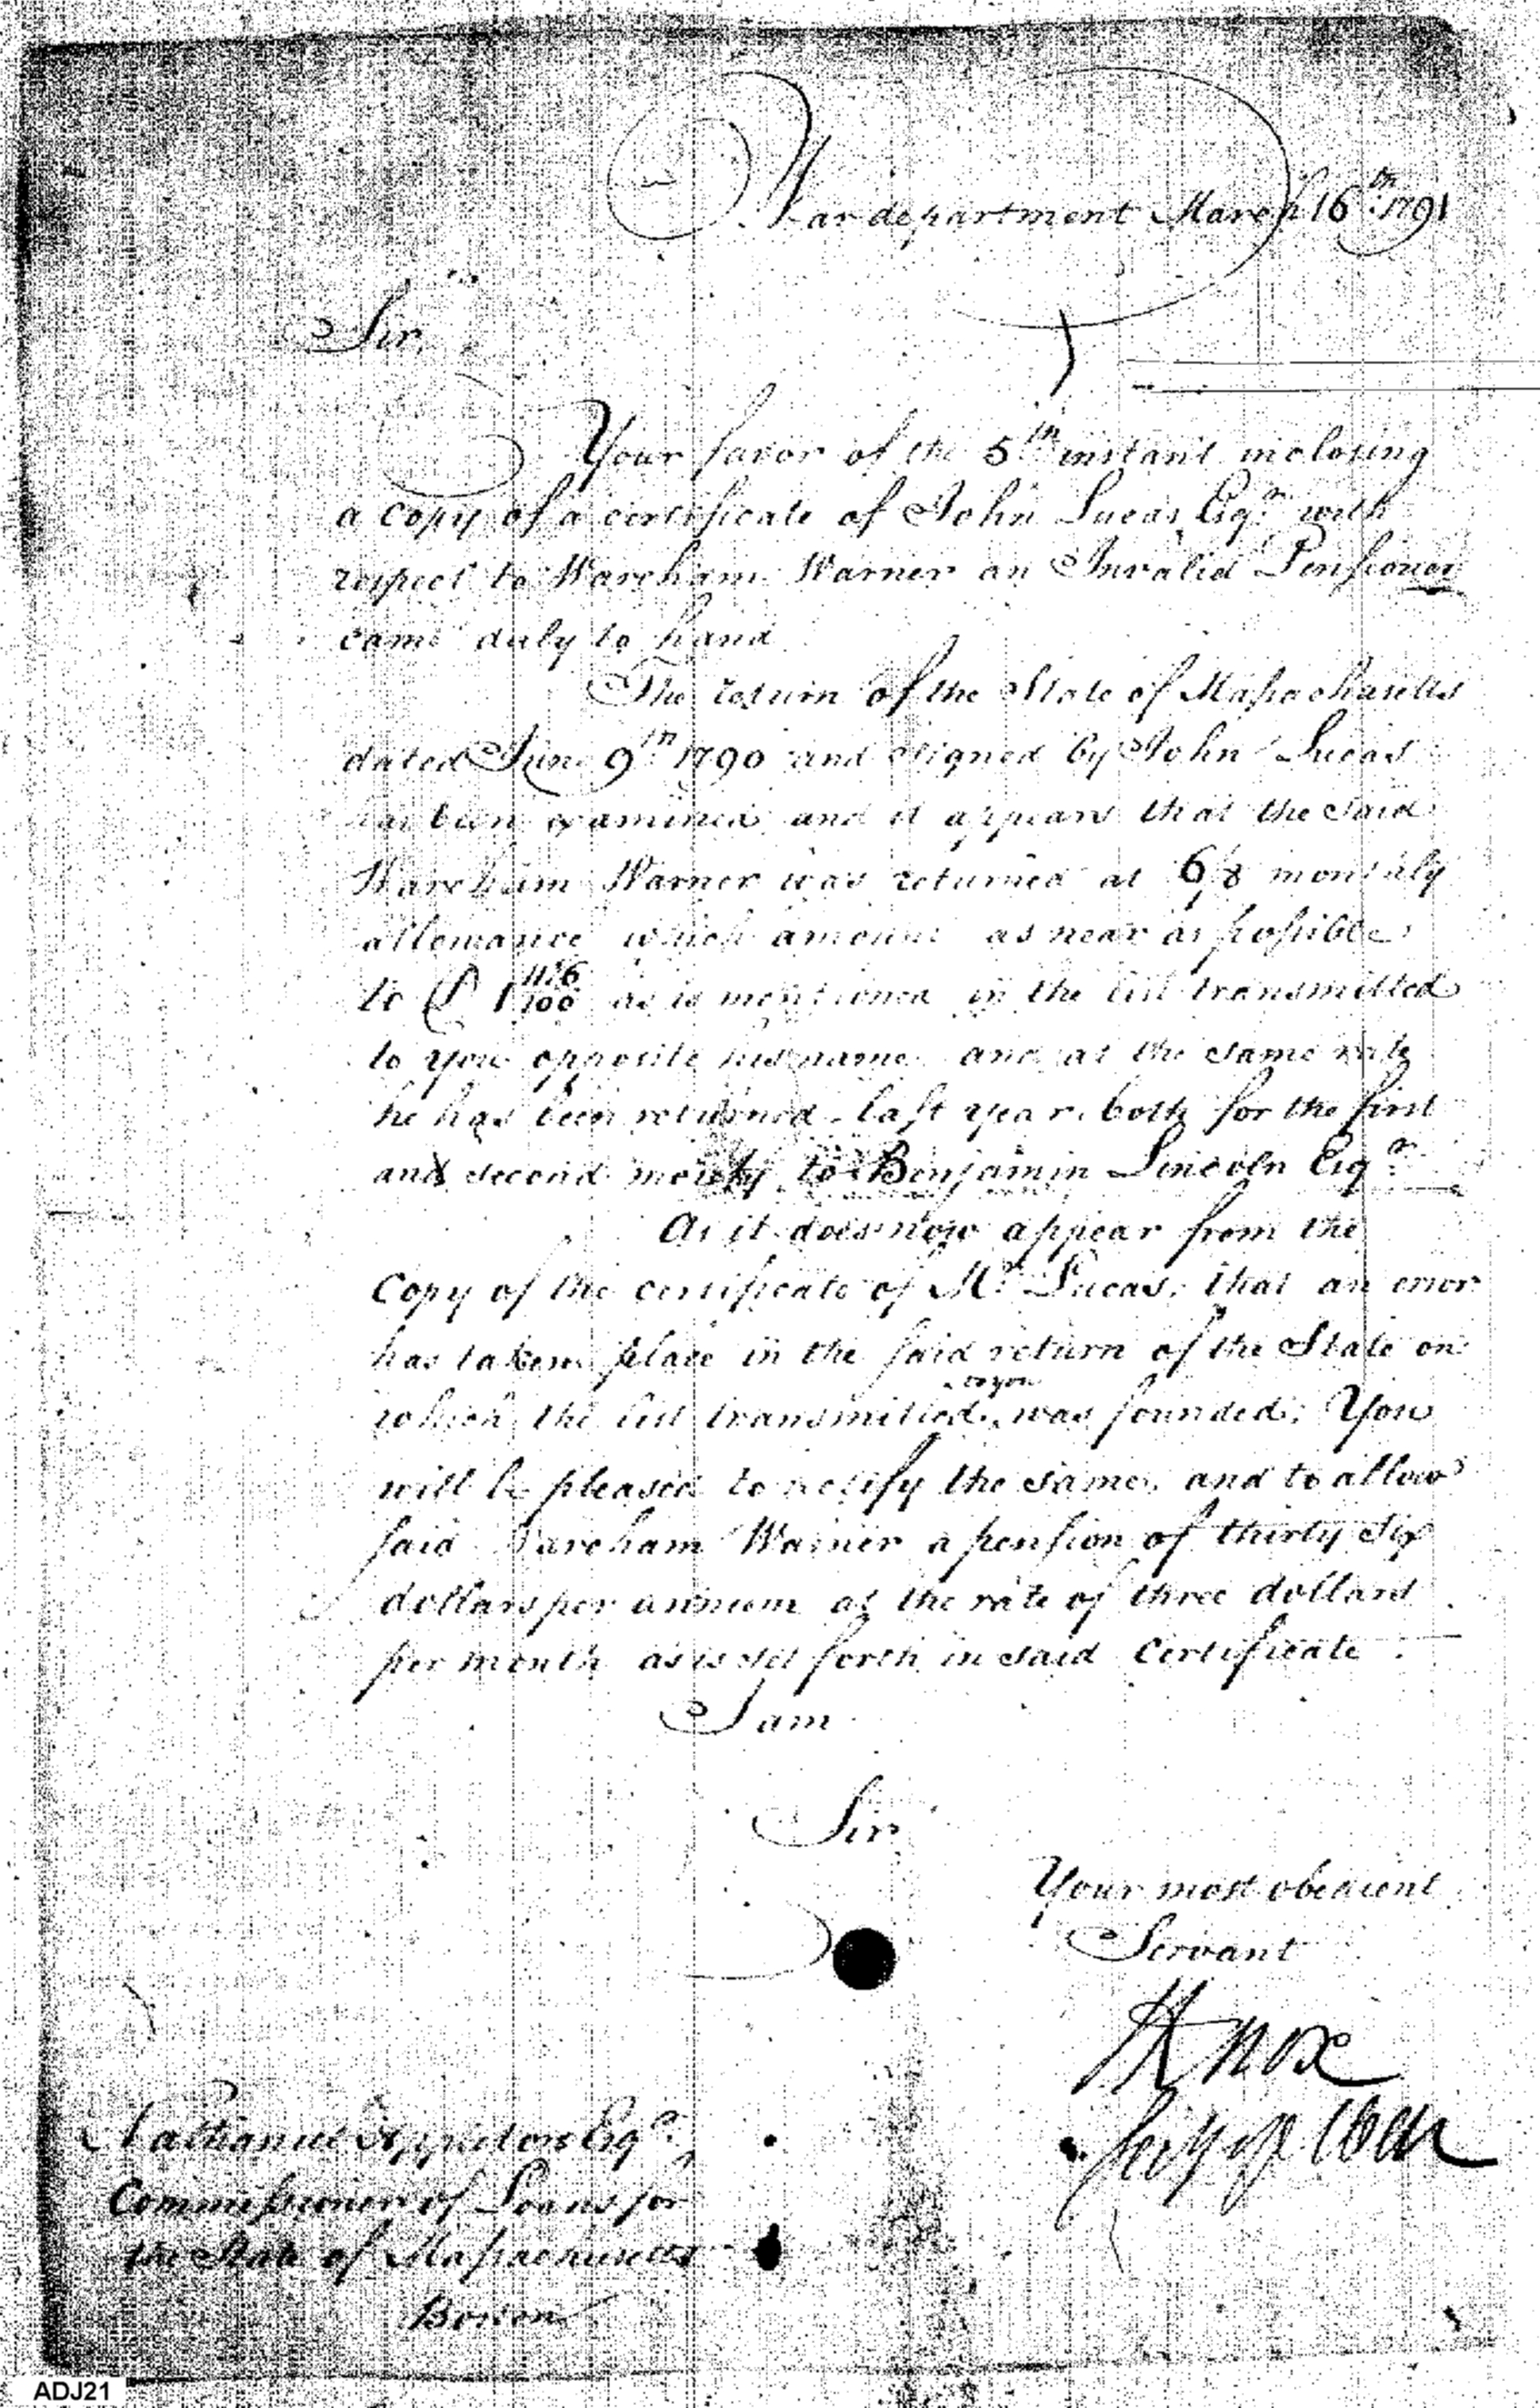 War department March 16th 1791
Sir,
Your favor of the 5th instant inclosing
a copy of a certificate of John Lucas Esqr with
respect to Wareham Warner an Invalid Pensioner
came duly to hand
The return of the State of Massachusetts
dated June 9th 1790 and signed by John Lucas
has been examined and it appears that the said
Wareham Warner was returned at 6/8 monthly
allowance which amount as near as possible
to 1 /100 as is mentioned in the list transmitted
to you opposite his name and at the same rate
he has been returned last year both for the first
and second moiety to Benjamin Lincoln Esqr
As it does now appear from the
Copy of the certificate of Mr Lucas, that an error
has taken place in the said return of the State on
to you
which the list transmitted, was founded; You
will be pleased to rectify the same, and to allow
said Wareham Warner a pension of thirty Six
dollars per annum at the rate of three dollars
per month as is set forth in said Certificate.
I am
Sir
Your most obedient
Servant
HKnox
Secy of War
Nathaniel Appleton Esqr
Commissioner of Loans for
the State of Massachusetts
Boston
ADJ21